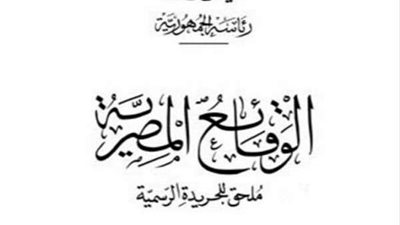 رئاسة الجمهورية
الوقائع المصرية
ملحق للجريدة الرسمية